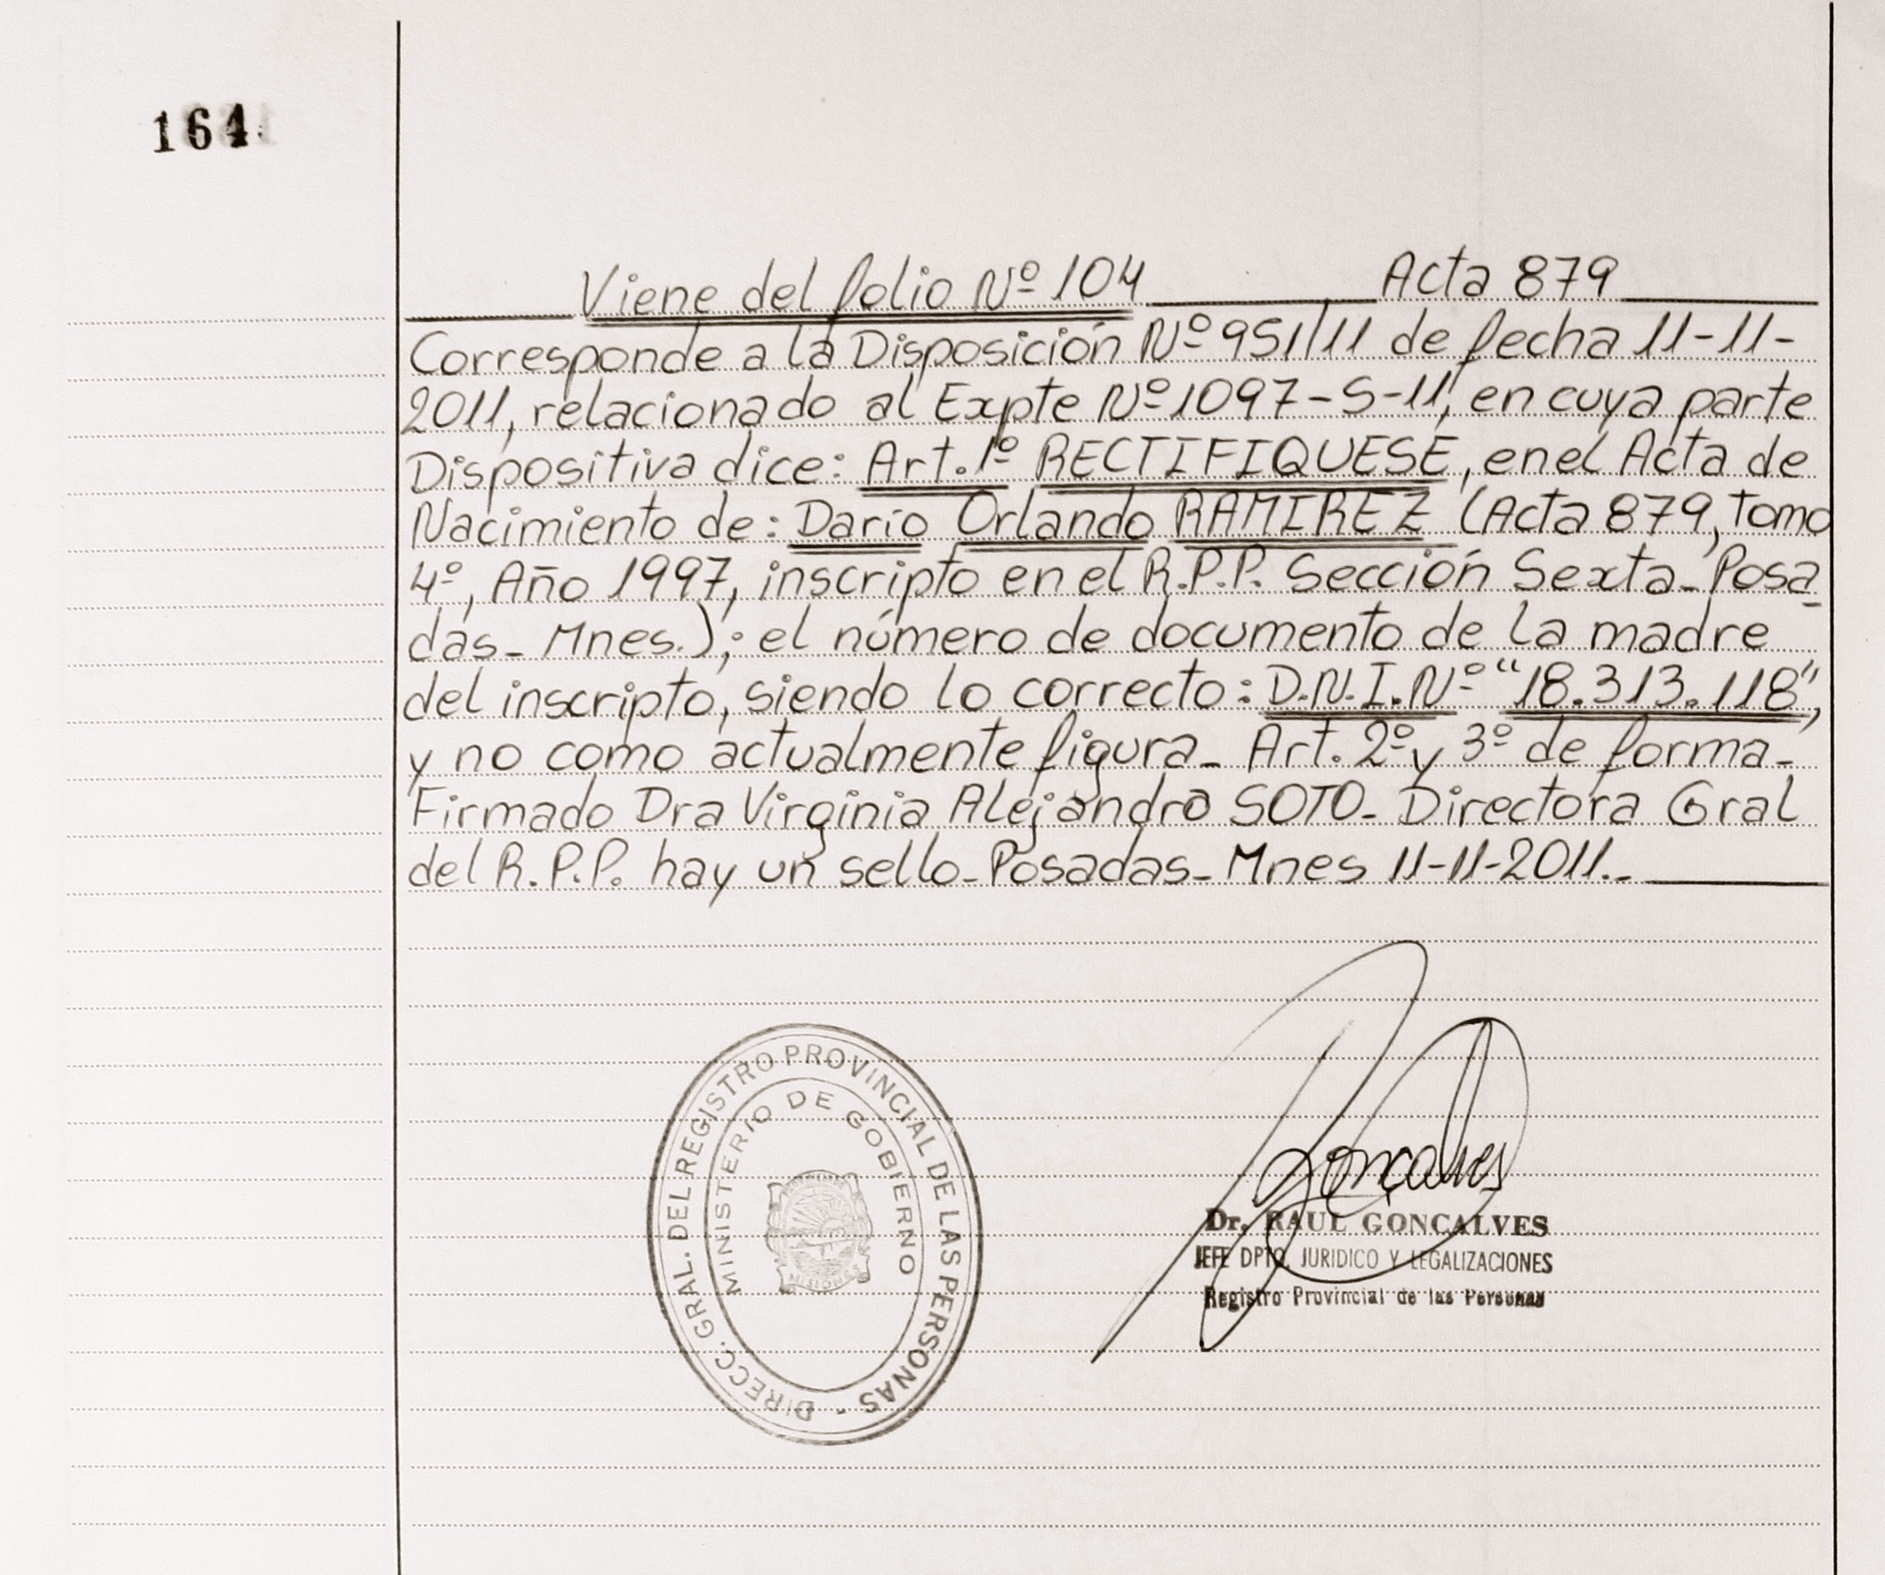 164
Viene del folio Nº 104 Acta 879
Corresponde a la Disposición Nº 951/11 de fecha 11-11-
2011, relacionado al Expte Nº 1097-S-11, en cuya parte
Dispositiva dice: Art. 1º RECTIFIQUESE, en el Acta de
Nacimiento de: Dario Orlando RAMIREZ (Acta 879, Tomo
4º, Año 1997, inscripto en el R.P.P. Sección Sexta_ Posa
das_ Mnes.); el número de documento de la madre
del inscripto, siendo lo correcto: D.N.I. Nº "18.313.118",
y no como actualmente figura_ Art. 2º y 3º de forma_
Firmado Dra Virginia Alejandra SOTO_ Directora Gral
del R.P.P. hay un sello_ Posadas_ Mnes 11-11-2011._
DIRECC. GRAL. DEL REGISTRO PROVINCIAL DE LAS PERSONAS -
MINISTERIO DE GOBIERNO
MISIONES
Goncalves
Dr. RAUL GONCALVES
JEFE DPTO. JURIDICO Y LEGALIZACIONES
Registro Provincial de las Personas